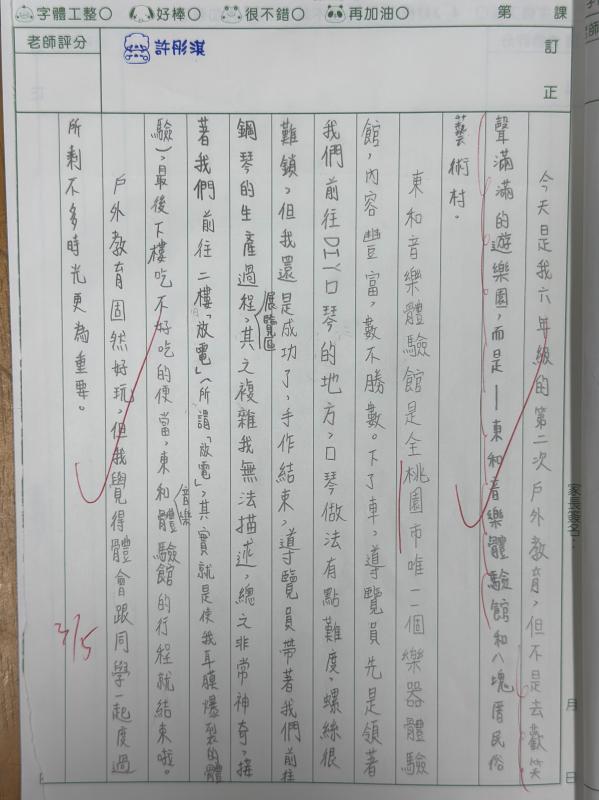 字體工整○ 好棒○ 很不錯○ 再加油○ 第 課
老師評分
許彤淇
訂正
今天是我六年級的第二次戶外教育，但不是去歡笑
聲滿滿的遊樂園，而是—東和音樂體驗館和八塊厝民俗
藝術村。
東和音樂體驗館是全桃園市唯一一個樂器體驗
館，內容豐富，數不勝數。下了車，導覽員先是領著
我們前往DIY口琴的地方，口琴做法有點難度，螺絲很
難鎖，但我還是成功了，手作結束，導覽員帶著我們前往
展覽區
鋼琴的生產過程，其之複雜我無法描述，總之非常神奇，接
著我們前往二樓「放電」（所謂「放電」，其實就是使我耳膜爆裂的體
驗），最後下樓吃不好吃的便當，東和音樂體驗館的行程就結束啦。
戶外教育固然好玩，但我覺得體會跟同學一起度過
所剩不多時光更為重要。
3/5
家長簽名：
月 日